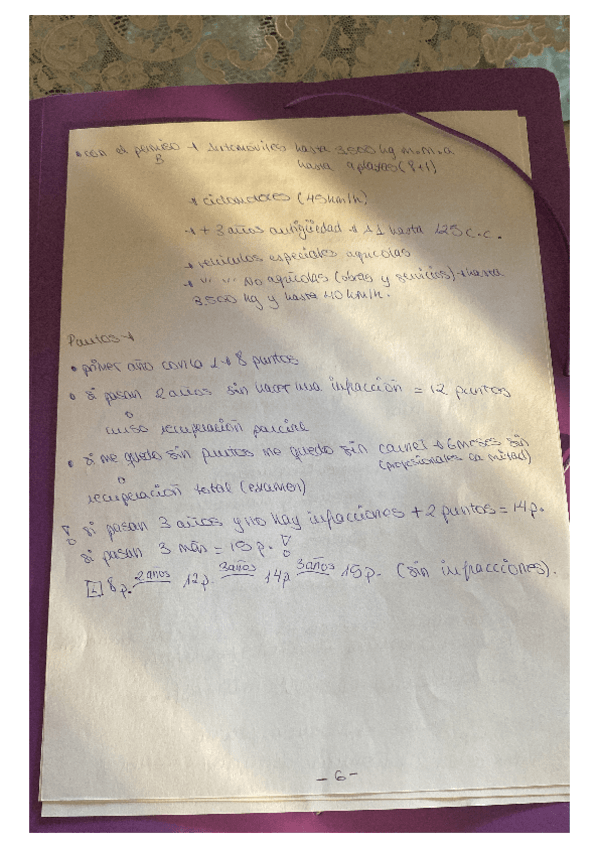 • con el permiso → Automóviles hasta 3500 kg m.m.a
B hasta 9 plazas (8+1)
→ ciclomotores (45 km/h)
→ + 3 años antigüedad → A1 hasta 125 c.c.
→ vehículos especiales agrícolas
→ " " No agrícolas (obras y servicios) → hasta
3.500 kg y hasta 40 km/h.
Puntos →
• primer año con la L → 8 puntos
• si pasan 2 años sin hacer una infracción = 12 puntos
curso recuperación parcial
• si me quedo sin puntos me quedo sin carnet → 6 meses sin
(profesionales la mitad)
recuperación total (examen)
! si pasan 3 años y no hay infracciones + 2 puntos = 14 p.
si pasan 3 más = 15 p. !
[L] 8 p. 2 años 12 p. 3 años 14 p 3 años 15 p. (sin infracciones).
- 6 -